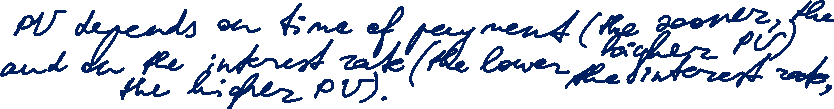 PV depends on time of payment (the sooner, the higher PV)
and on the interest rate (the lower the interest rate,
the higher PV).